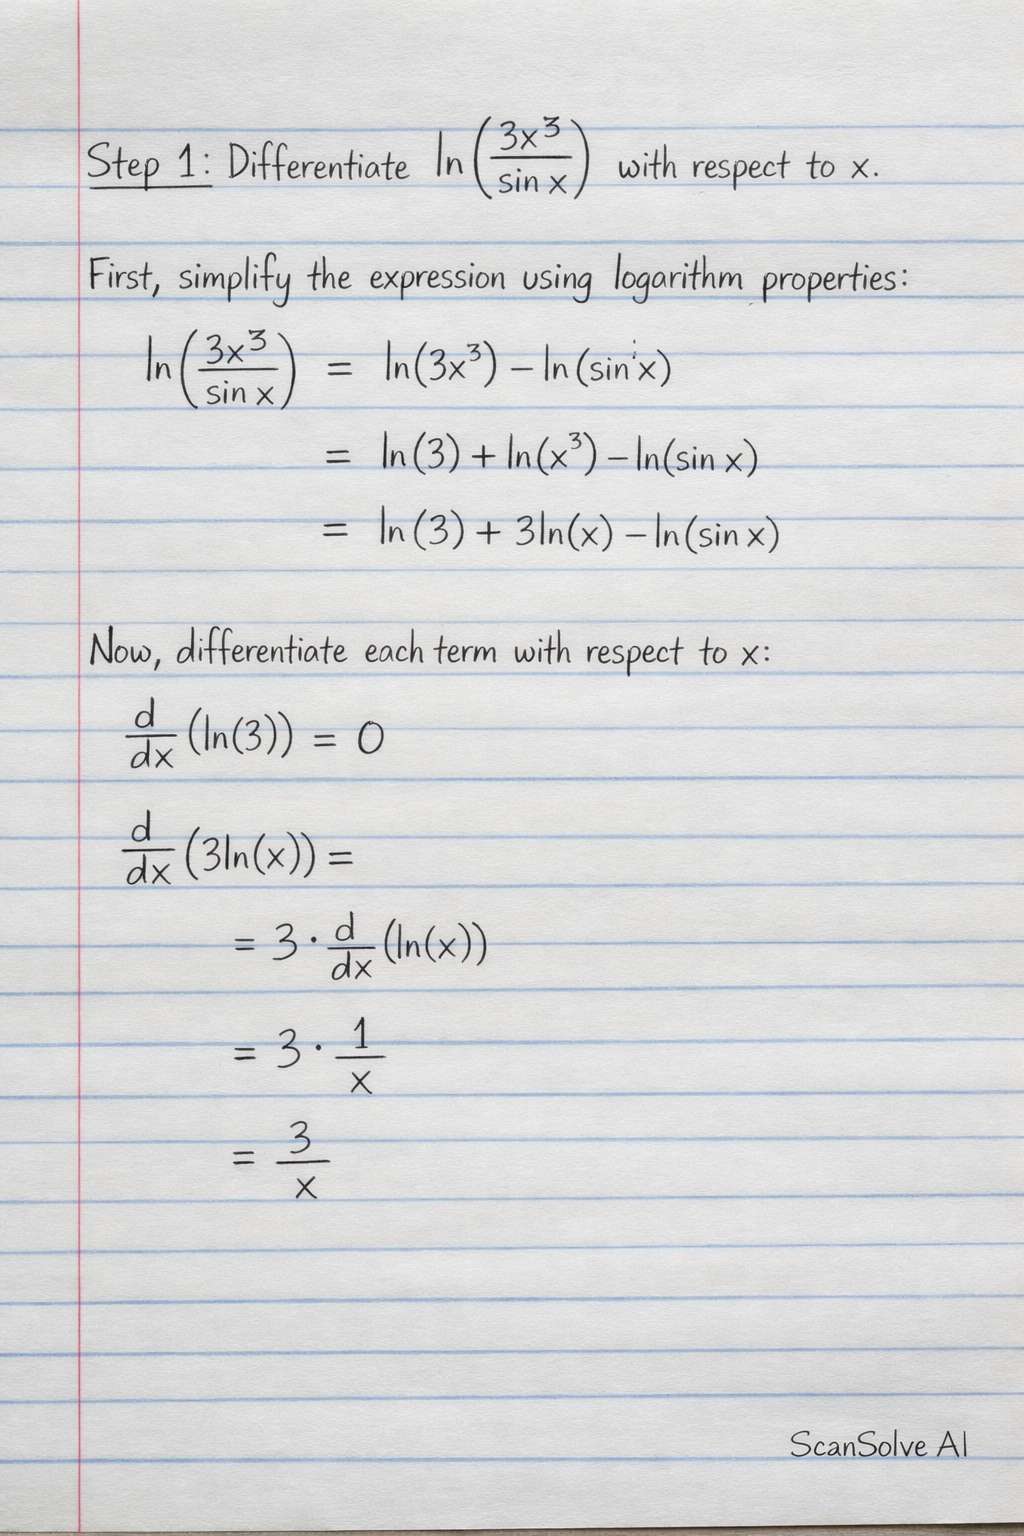 Step 1: Differentiate ln(3x³/sin x) with respect to x.
First, simplify the expression using logarithm properties:
ln(3x³/sin x) = ln(3x³) − ln(sin x)
= ln(3) + ln(x³) − ln(sin x)
= ln(3) + 3ln(x) − ln(sin x)
Now, differentiate each term with respect to x:
d/dx (ln(3)) = 0
d/dx (3ln(x)) =
= 3 · d/dx (ln(x))
= 3 · 1/x
= 3/x
ScanSolve AI